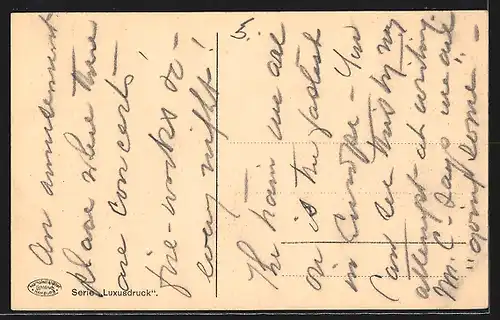 An ammusement
place where there
are concerts —
fire-works &
every night!
5
The train we are
on is the fastest
in Europe — You
can see this by my
attempt at writing.
Mr. C- says we are
"going some" —
Serie „Luxusdruck“.